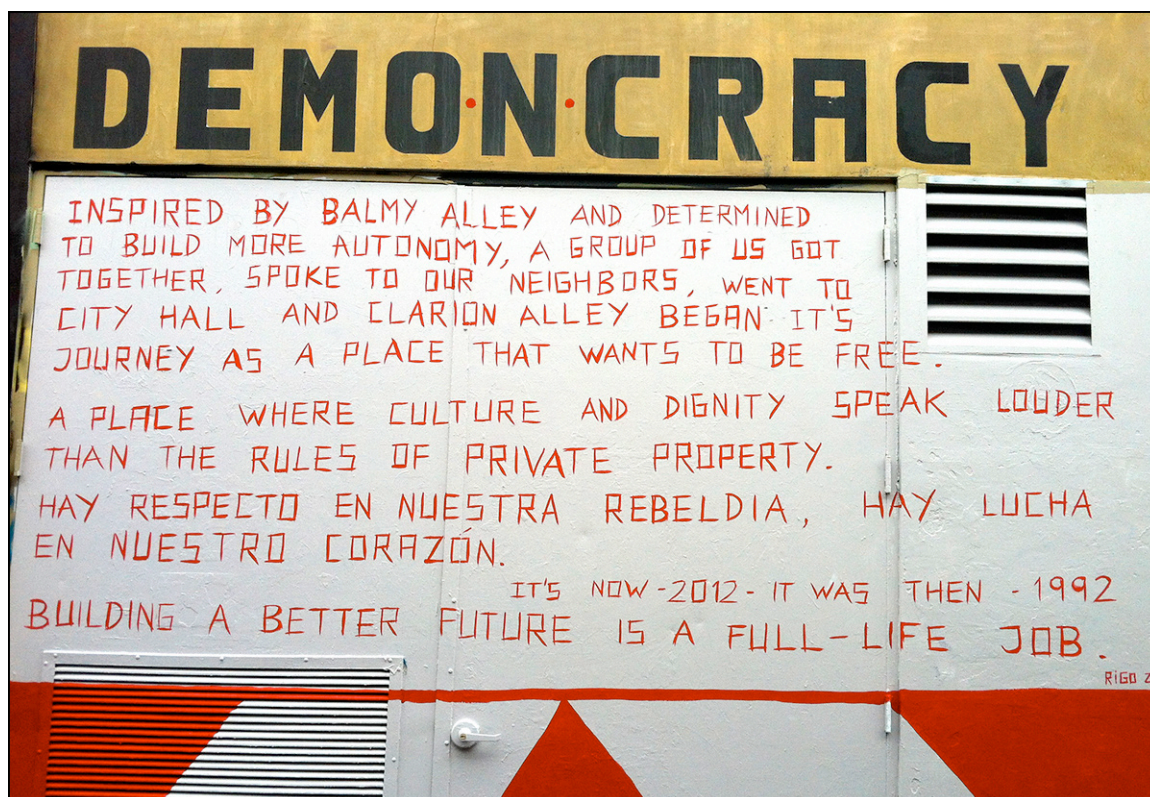 DEMO·N·CRACY
INSPIRED BY BALMY ALLEY AND DETERMINED
TO BUILD MORE AUTONOMY, A GROUP OF US GOT
TOGETHER, SPOKE TO OUR NEIGHBORS, WENT TO
CITY HALL AND CLARION ALLEY BEGAN IT'S
JOURNEY AS A PLACE THAT WANTS TO BE FREE.
A PLACE WHERE CULTURE AND DIGNITY SPEAK LOUDER
THAN THE RULES OF PRIVATE PROPERTY.
HAY RESPECTO EN NUESTRA REBELDIA, HAY LUCHA
EN NUESTRO CORAZÓN.
IT'S NOW -2012- IT WAS THEN - 1992
BUILDING A BETTER FUTURE IS A FULL-LIFE JOB.
RIGO